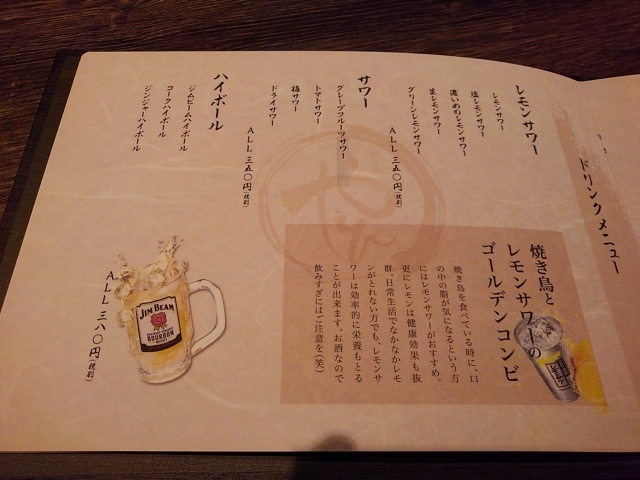 ドリンクメニュー
レモンサワー
レモンサワー
塩レモンサワー
濃いめのレモンサワー
生レモンサワー
グリーンレモンサワー
ALL 三五〇円(税別)
サワー
グレープフルーツサワー
トマトサワー
梅サワー
ドライサワー
ALL 三五〇円(税別)
ハイボール
ジムビームハイボール
コークハイボール
ジンジャーハイボール
ALL 三八〇円(税別)
焼き鳥と
レモンサワーの
ゴールデンコンビ
焼き鳥を食べている時に、口
の中の脂が気になるという方
にはレモンサワーがおすすめ。
更にレモンは健康効果も抜
群。日常生活でなかなかレモ
ンがとれない方でも、レモンサ
ワーは効率的に栄養もとる
ことが出来ます。お酒なので
飲みすぎにはご注意を(笑)
JIM BEAM
BOURBON